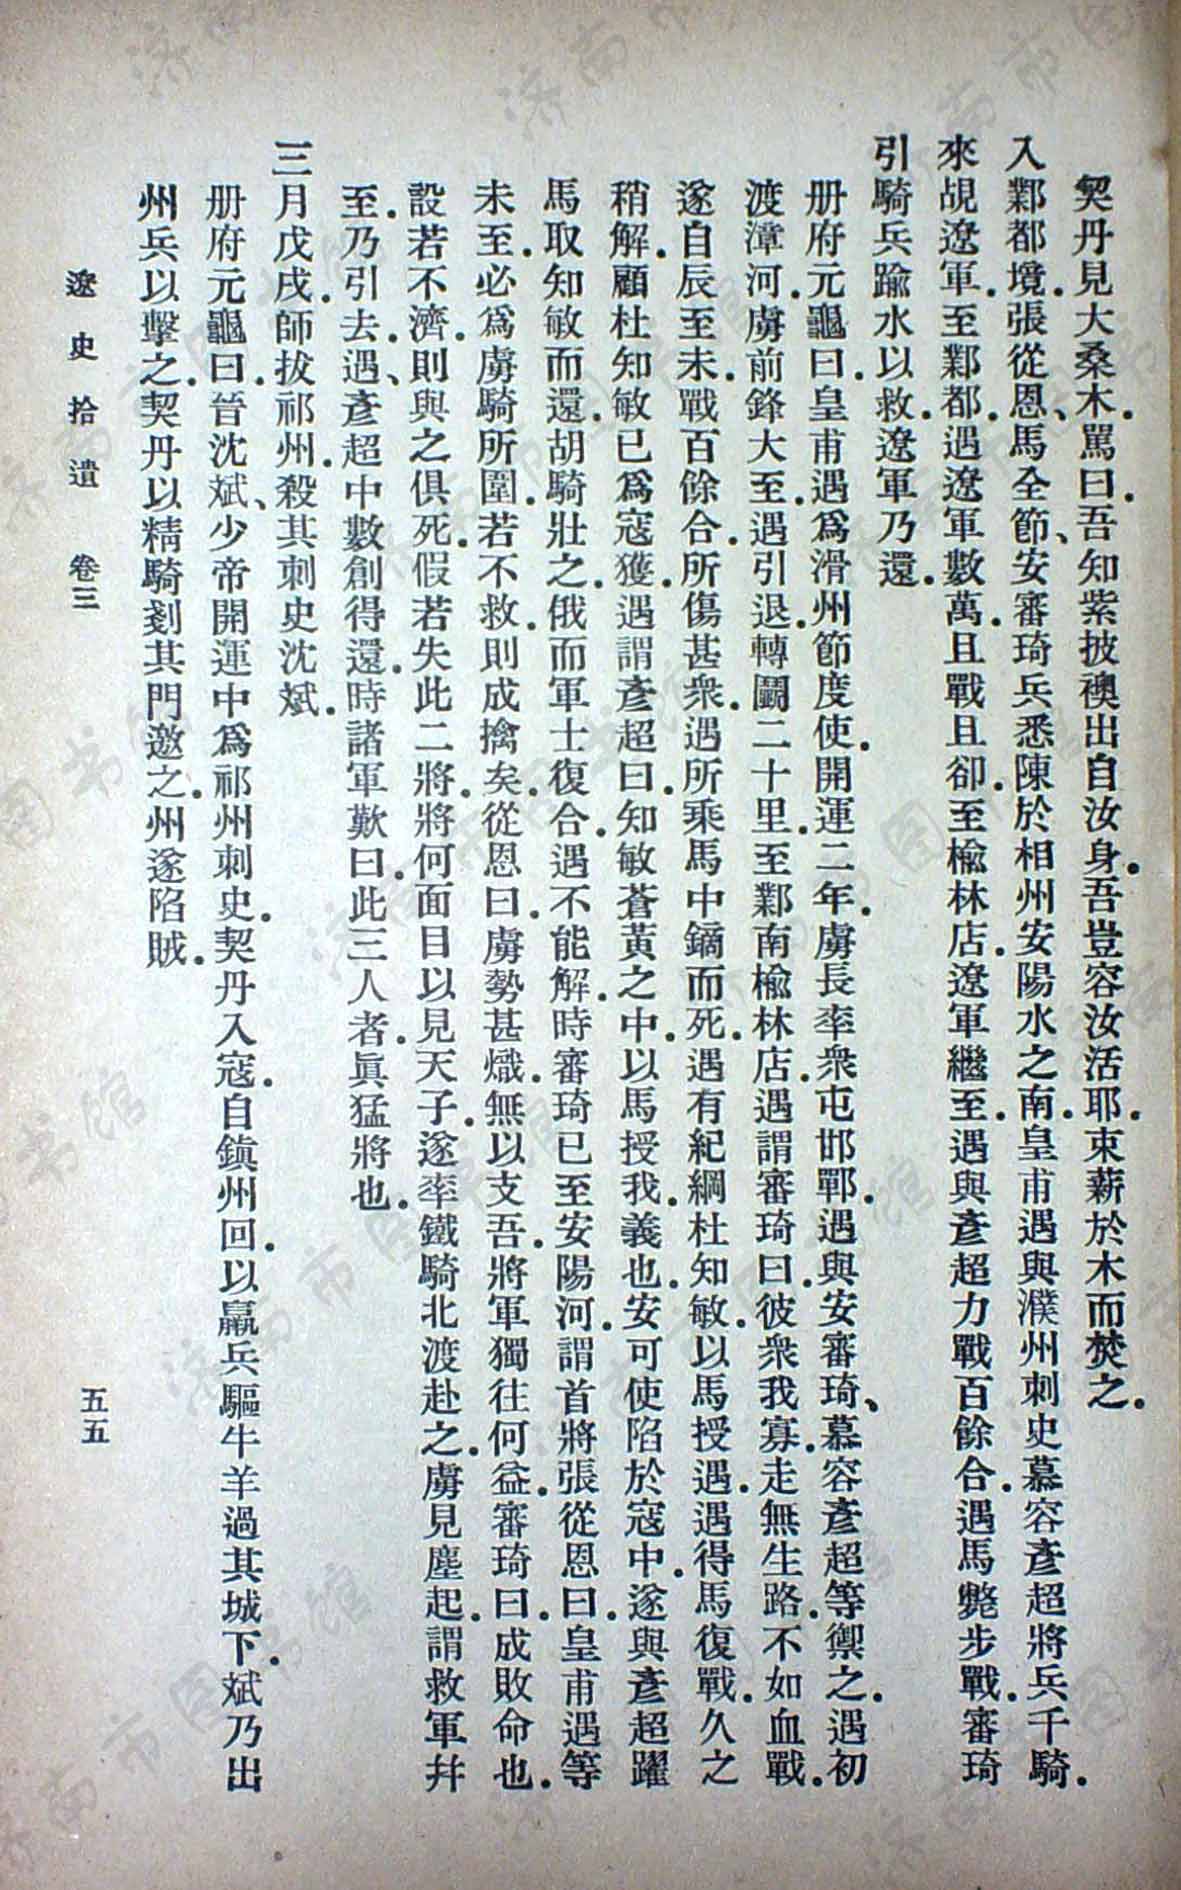 契丹見大桑木.罵曰.吾知紫披襖出自汝身.吾豈容汝活耶.束薪於木而焚之.
入鄴都境.張從恩、馬全節、安審琦兵悉陳於相州安陽水之南.皇甫遇與濮州刺史慕容彥超將兵千騎.
來覘遼軍.至鄴都.遇遼軍數萬.且戰且卻.至榆林店.遼軍繼至.遇與彥超力戰百餘合.遇馬斃步戰.審琦
引騎兵踰水以救.遼軍乃還.
册府元龜曰.皇甫遇爲滑州節度使.開運二年.虜長率衆屯邯鄲.遇與安審琦、慕容彥超等禦之.遇初
渡漳河.虜前鋒大至.遇引退.轉鬬二十里.至鄴南榆林店.遇謂審琦曰.彼衆我寡.走無生路.不如血戰.
遂自辰至未.戰百餘合.所傷甚衆.遇所乘馬中鏑而死.遇有紀綱杜知敏.以馬授遇.遇得馬復戰.久之
稍解.顧杜知敏已爲寇獲.遇謂彥超曰.知敏蒼黃之中.以馬授我.義也.安可使陷於寇中.遂與彥超躍
馬取知敏而還.胡騎壯之.俄而軍士復合.遇不能解.時審琦已至安陽河.謂首將張從恩曰.皇甫遇等
未至.必爲虜騎所圍.若不救.則成擒矣.從恩曰.虜勢甚熾.無以支吾.將軍獨往何益.審琦曰.成敗命也.
設若不濟.則與之俱死.假若失此二將.將何面目以見天子.遂率鐵騎北渡赴之.虜見塵起.謂救軍幷
至.乃引去.遇、彥超中數創得還.時諸軍歎曰.此三人者.眞猛將也.
三月戊戌.師拔祁州.殺其刺史沈斌.
册府元龜曰.晉沈斌、少帝開運中爲祁州刺史.契丹入寇.自鎮州回.以羸兵驅牛羊過其城下.斌乃出
州兵以擊之.契丹以精騎剗其門邀之.州遂陷賊.
遼史拾遺 卷三
五五